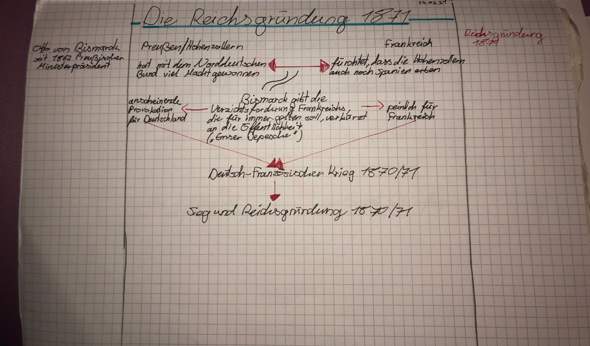 Die Reichsgründung 1871
Otto von Bismarck
seit 1862 Preußischer
Ministerpräsident
Preußen/Hohenzollern
hat mit dem Norddeutschen
Bund viel Macht gewonnen
Frankreich
fürchtet, dass die Hohenzollern
auch noch Spanien erben
Reichsgründung
1871
anscheinende
Provokation
für Deutschland
Bismarck gibt die
Verzichtsforderung Frankreichs,
die für immer gelten soll, verkürzt
an die Öffentlichkeit
("Emser Depesche")
peinlich für
Frankreich
Deutsch-Französischer Krieg 1870/71
Sieg und Reichsgründung 1870/71